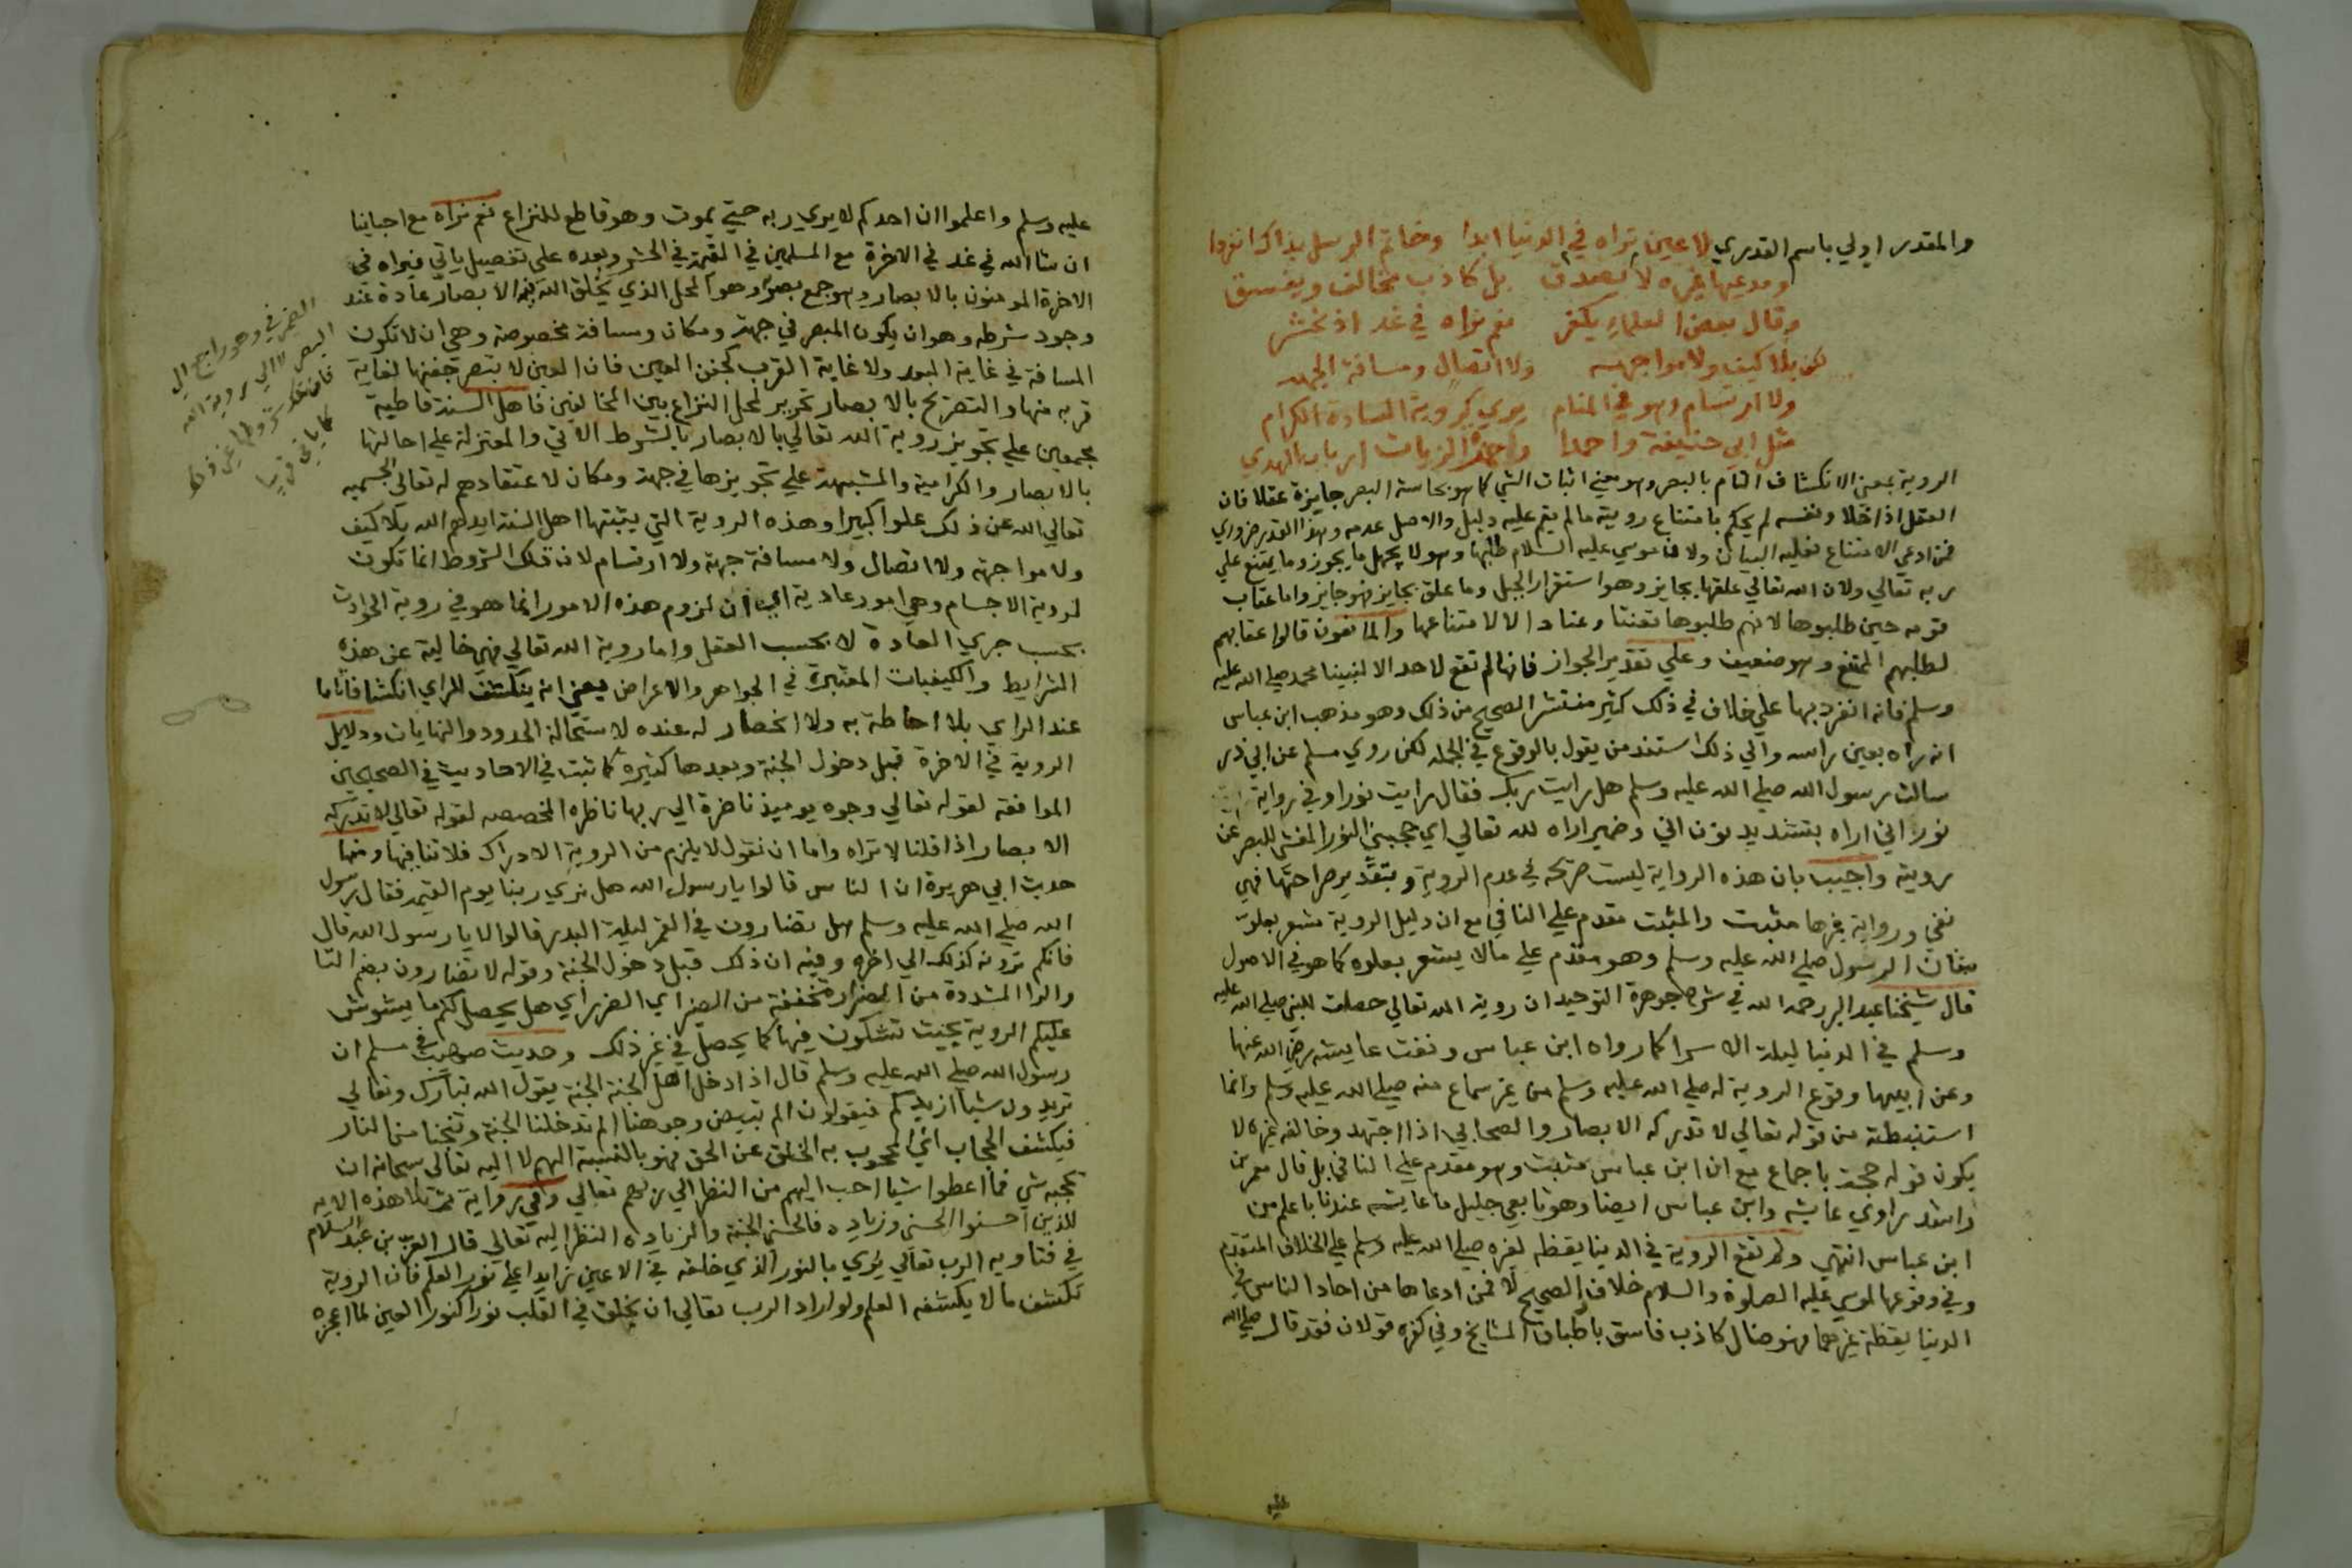 والمقدر اولي باسم القدري لا عين تراه في الدنيا ابدا وخاتم الرسل بذاك انفردا
ومدعيها غيره لا يصدق بل كاذب مخالف ويفسق
وقال بعض العلماء يكفر نعم نراه في غد اذ نحشر
لكن بلا كيف ولا مواجهه ولا اتصال ومسافة الجهه
ولا ارتسام وهو في المنام يري كروية السادة الكرام
مثل ابي حنيفة واحمدا وحمزة الزيات ارباب الهدي
الروية بمعني الانكشاف التام بالبصر وهو معني اثبات الشي كما هو بحاسة البصر جايزة عقلا فان
العقل اذا خلا ونفسه لم يحكم بامتناع رويته ما لم يقم عليه دليل والاصل عدمه وهذا القدر ضروري
فمن ادعي الامتناع فعليه البيان ولان موسي عليه السلام طلبها وهو لا يجهل ما يجوز وما يمتنع علي
ربه تعالي ولان الله تعالي علقها بجايز وهو استقرار الجبل وما علق بجايز فهو جايز واما عقاب
قومه حين طلبوها لانهم طلبوها تعنتا وعنادا لا لامتناعها والمانعون قالوا عقابهم
لطلبهم الممتنع وهو ضعيف وعلي تقدير الجواز فانها لم تقع لاحد الا لنبينا محمد صلي الله عليه
وسلم فانه انفرد بها علي خلاف في ذلك كثير منتشر الصحيح من ذلك وهو مذهب ابن عباس
انه راه بعين راسه والي ذلك استند من يقول بالوقوع في الجمله لكن روي مسلم عن ابي ذر
سالت رسول الله صلي الله عليه وسلم هل رايت ربك فقال رايت نورا وفي رواية
نور اني اراه بتشديد نون اني وضمير اراه لله تعالي اي حجبني النور المغشي للبصر عن
رويته واجيب بان هذه الرواية ليست صريحه في عدم الروية وبتقدير صراحتها فهي
نفي ورواية غيرها مثبت والمثبت مقدم علي النافي مع ان دليل الروية مشعر بعلو
مقان الرسول صلي الله عليه وسلم وهو مقدم علي ما لا يشعر بعلوه كما هو في الاصول
قال شيخنا عبد البر رحمه الله في شرح جوهرة التوحيد ان روية الله تعالي حصلت للنبي صلي الله عليه
وسلم في الدنيا ليلة الاسرا كما رواه ابن عباس ونفت عايشه رضي الله عنها
وعن ابيها وقوع الروية له صلي الله عليه وسلم من غير سماع منه صلي الله عليه وسلم وانما
استنبطته من قوله تعالي لا تدركه الابصار والصحابي اذا اجتهد وخالفه غيره لا
يكون قوله حجة باجماع مع ان ابن عباس مثبت وهو مقدم علي النافي بل قال معمر بن
راشد راوي عايشه وابن عباس ايضا وهو تابعي جليل ما عايشه عندنا باعلم من
ابن عباس انتهي ولم تقع الروية في الدنيا يقظه لغيره صلي الله عليه وسلم علي الخلاف المتقدم
وفي وقوعها لموسي عليه الصلوة والسلام خلاف الصحيح لا فمن ادعاها من احاد الناس في
الدنيا يقظة غيرهما فهو ضال كاذب فاسق باطباق المشايخ وفي كفره قولان فقد قال صلي الله
عليه
عليه وسلم واعلموا ان احدكم لا يري ربه حتي يموت وهو قاطع للنزاع نعم نراه مع احبابنا
ان شا الله في غد في الاخرة مع المسلمين في القيمة في الحشر وبعده علي تفصيل ياتي فيراه في
الاخرة المومنون بالابصار وهو جمع بصر وهو المحل الذي يخلق الله فيه الابصار عادة عند
وجود شرطه وهو ان يكون المبصر في جهة ومكان ومسافة مخصوصة وهي ان لا تكون
المسافة في غاية البعد ولا غاية القرب كجفن العين فان العين لا تبصر جفنها لغاية
قربه منها والتصريح بالابصار تحرير لمحل النزاع بين المخالفين فاهل السنة قاطبة
مجمعين علي تجويز روية الله تعالي بالابصار بالشرط الاتي والمعتزلة علي احالتها
بالابصار والكرامية والمشبهة علي تجويزها في جهة ومكان لاعتقادهم له تعالي الجسميه
تعالي الله عن ذلك علوا كبيرا وهذه الروية التي يثبتها اهل السنة ايدهم الله بلا كيف
ولا مواجهة ولا اتصال ولا مسافة جهة ولا ارتسام لان تلك الشروط انما تكون
لروية الاجسام وهي امور عادية اي ان لزوم هذه الامور انما هو في روية الحوادث
بحسب جري العادة لا بحسب العقل واما روية الله تعالي فهي خالية عن هذه
الشرايط والكيفيات المعتبرة في الجواهر والاعراض يعني انه ينكشف للراي انكشافا تاما
عند الراي بلا احاطة به ولا انحصار له عنده لاستحالة الحدود والنهايات ودلايل
الروية في الاخرة قبل دخول الجنة وبعدها كثيرة كما ثبت في الاحاديث في الصحيحين
الموافقه لقوله تعالي وجوه يوميذ ناضرة الي ربها ناظره المخصصه لقوله تعالي لا تدركه
الابصار اذا قلنا لا تراه واما ان نقول لا يلزم من الروية الادراك فلا تنافيها ومنها
حديث ابي هريرة ان الناس قالوا يا رسول الله هل نري ربنا يوم القيمه فقال رسول
الله صلي الله عليه وسلم هل تضارون في القمر ليلة البدر قالوا لا يا رسول الله قال
فانكم ترونه كذلك الي اخره وفيه ان ذلك قبل دخول الجنة وقوله لا تضارون بضم التا
والرا المشددة من الضرار ومخففة من الضير اي الضرر اي هل يحصل لكم ما يشوش
عليكم الروية بحيث تشكون فيها كما يحصل في غير ذلك وحديث صهيب في مسلم ان
رسول الله صلي الله عليه وسلم قال اذا دخل اهل الجنة الجنة يقول الله تبارك وتعالي
تريدون شيا ازيدكم فيقولون الم تبيض وجوهنا الم تدخلنا الجنة وتنجنا من النار
فيكشف الحجاب اي المحجوب به الخلق عن الحق فهو بالنسبة اليهم لا اليه تعالي سبحانه ان
يحجبه شي فما اعطوا شيا احب اليهم من النظر الي ربهم تعالي وفي رواية ثم تلا هذه الايه
للذين احسنوا الحسني وزياده فالحسني الجنة والزياده النظر اليه تعالي قال العز بن عبد السلام
في فتاويه الرب تعالي يري بالنور الذي خلقه في الاعين زايدا علي نور العلم فان الروية
تكشف ما لا يكشفه العلم ولو اراد الرب تعالي ان يخلق في القلب نورا كنور العين لما اعجزه
الضمير في وهو راجع الي
البصر لا الي روية الله
كما ياتي قريبا